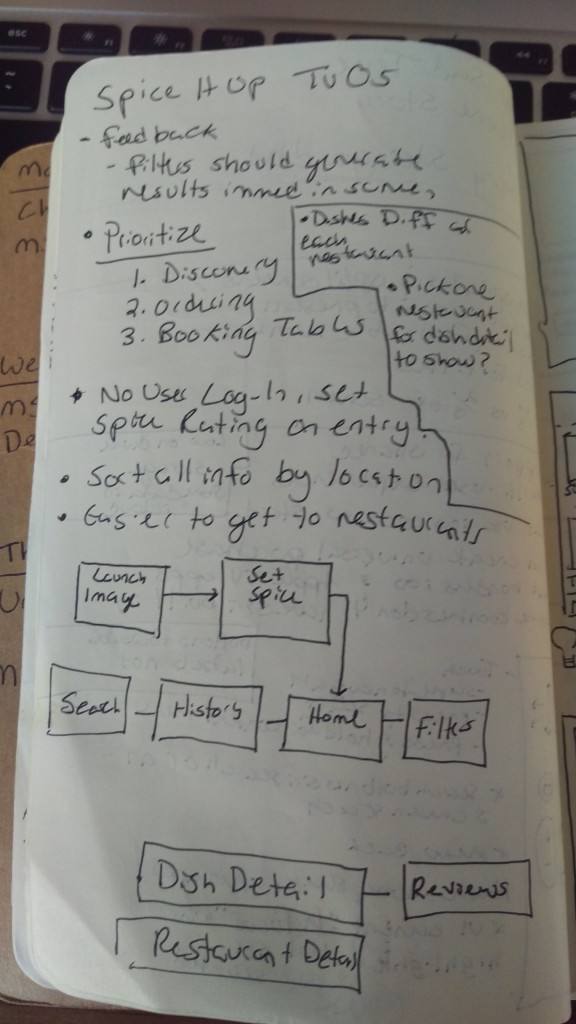 Spice It Up TVOS
- feedback
- filters should generate
results immed in screen,
• Prioritize
1. Discovery
2. Ordering
3. Booking Tables
• Dishes Diff at
each
restaurant
• Pick one
restaurant
for dish detail
to show?
• No User Log-In, set
Spice Rating on entry.
• Sort all info by location
• Easier to get to restaurants
Launch
Image
Set
Spice
Search
History
Home
Filters
Dish Detail
Reviews
Restaurant Detail
esc